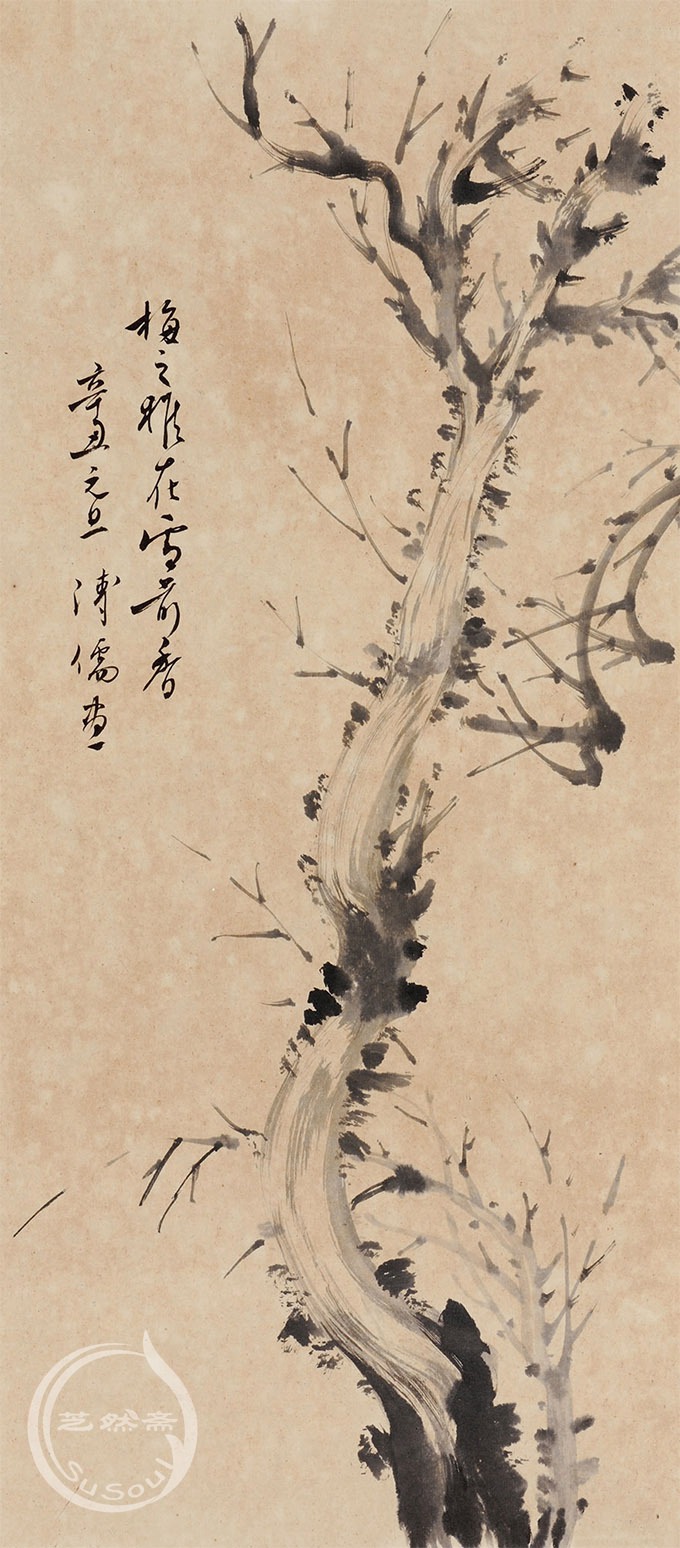 梅之雅在雪前香
辛丑元旦 溥儒畫
芝然斋
SuSoul